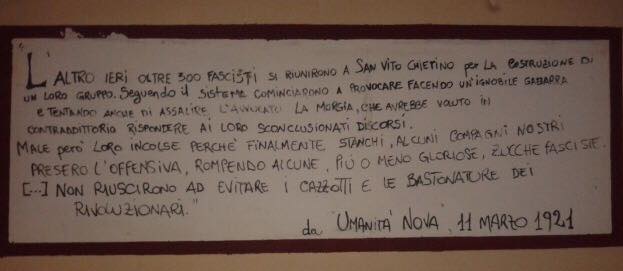 L'ALTRO IERI OLTRE 300 FASCISTI SI RIUNIRONO A SAN VITO CHIETINO PER LA COSTRUZIONE DI
UN LORO GRUPPO. SEGUENDO IL SISTEMA COMINCIARONO A PROVOCARE FACENDO UN'IGNOBILE GABARRA
E TENTANDO ANCHE DI ASSALIRE L'AVVOCATO LA MORGIA, CHE AVREBBE VOLUTO IN
CONTRADDITTORIA RISPONDERE AI LORO SCONCLUSIONATI DISCORSI.
MALE PERÒ LORO INCOLSE PERCHÈ FINALMENTE STANCHI, ALCUNI COMPAGNI NOSTRI
PRESERO L'OFFENSIVA, ROMPENDO ALCUNE, PIÙ O MENO GLORIOSE, ZUCCHE FASCISTE.
[...] NON RIUSCIRONO AD EVITARE I CAZZOTTI E LE BASTONATURE DEI
RIVOLUZIONARI."
da "UMANITÀ NOVA", 11 MARZO 1921